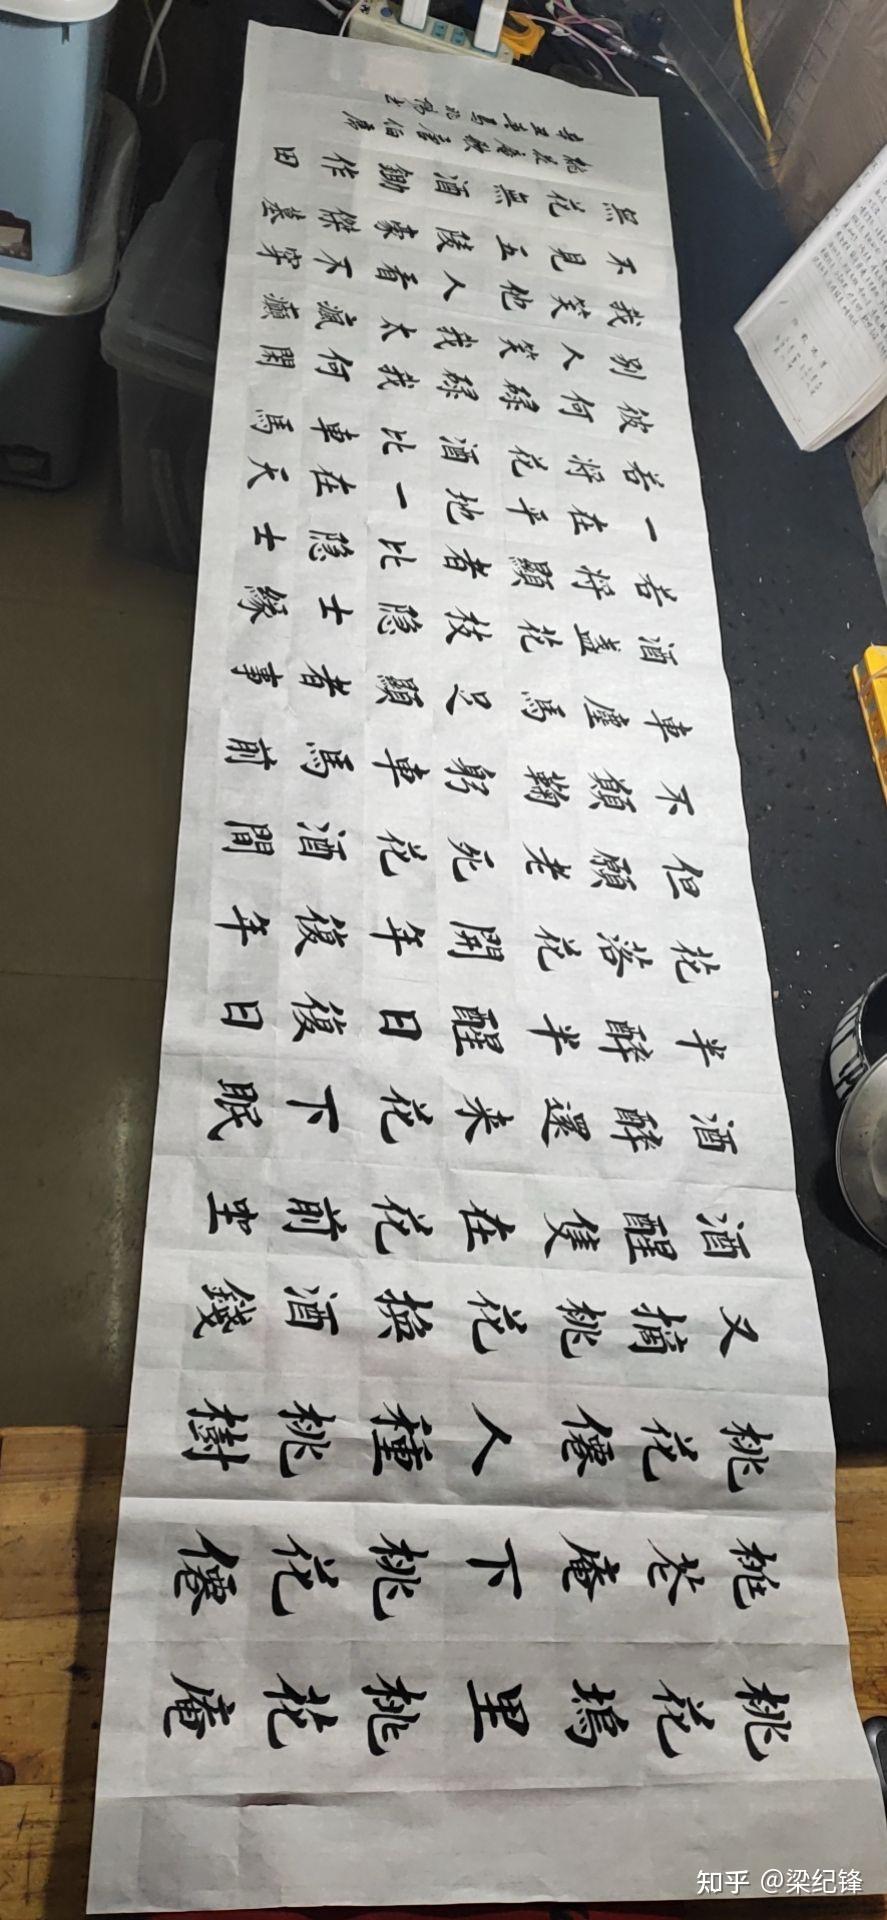 桃花塢里桃花庵
桃花庵下桃花僊
桃花僊人種桃樹
又摘桃花換酒錢
酒醒隻在花前坐
酒醉還来花下眠
半醉半醒日復日
花落花開年復年
但願老死花酒間
不願鞠躬車馬前
車塵馬足顯者事
酒盞花枝隐士緣
若將顯者比隐士
一在平地一在天
若將花酒比車馬
彼何碌碌我何閑
別人笑我太瘋癲
我笑他人看不穿
不見五陵豪傑墓
無花無酒鋤作田
桃花庵歌唐伯虎
辛丑
知乎 @梁纪锋